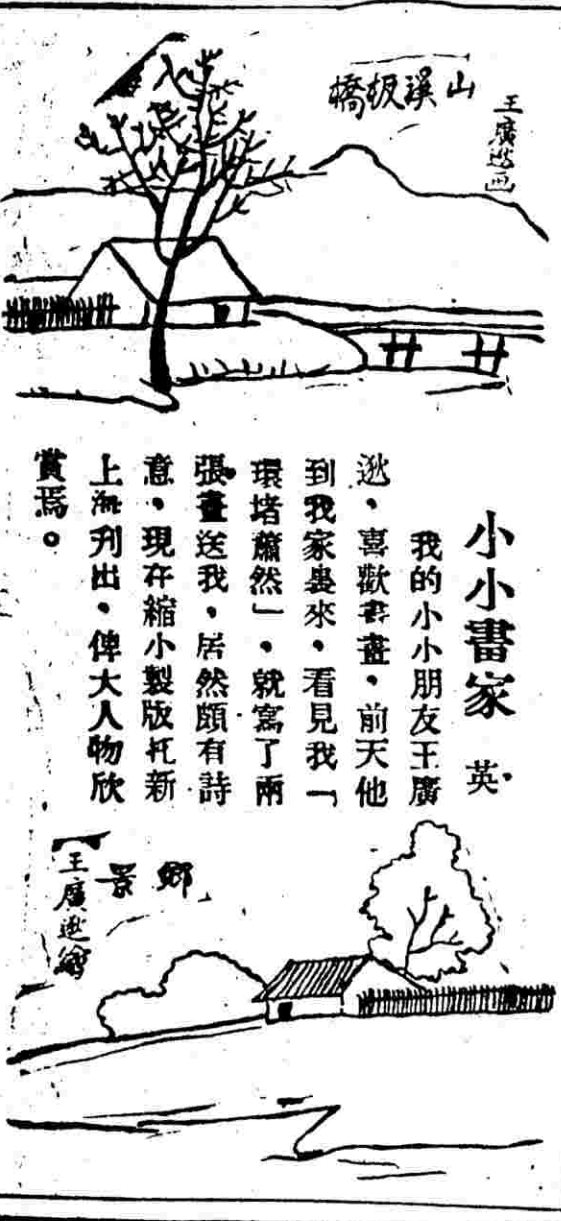 山溪板橋
王廣逖画
小小畫家 英
我的小小朋友王廣
逖、喜歡書畫、前天他
到我家裏來、看見我「
環堵蕭然」、就寫了兩
張畫送我、居然頗有詩
意、現在縮小製版在新
上海刋出、俾大人物欣
賞焉。
鄉景
王廣逖繪